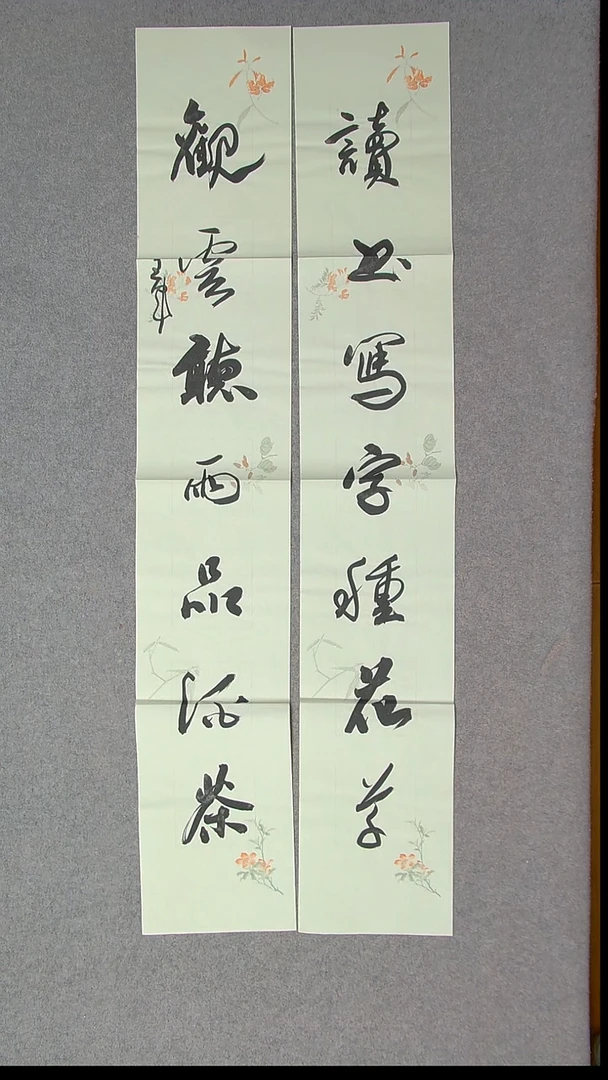 讀书寫字種花草
觀雲聽雨品酒茶